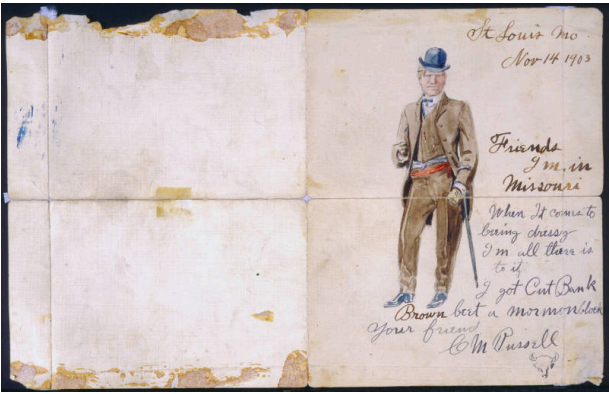 St Louis Mo
Nov 14 1903
Friends
I m in
Missouri
When It comes to
being dressy
I m all there is
to it
I got Cut Bank
Brown beat a mormon block
your friend
C M Russell